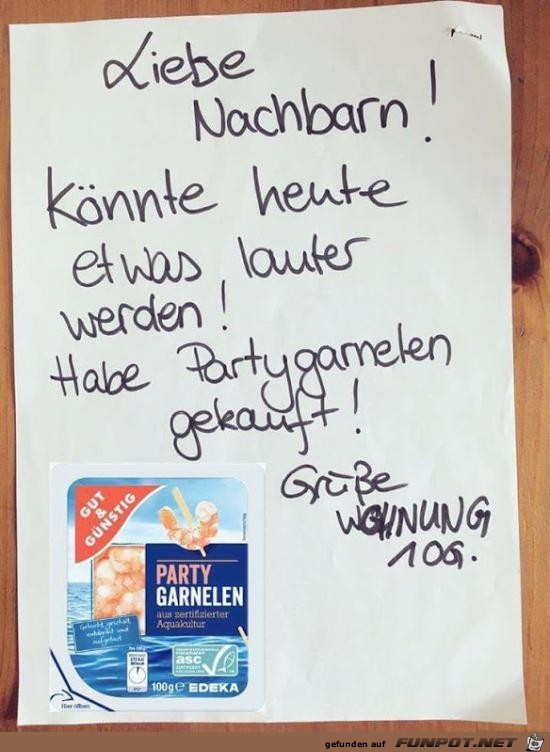 Liebe
Nachbarn!
Könnte heute
etwas lauter
werden!
Habe Partygarnelen
gekauft!
Grüße
WOHNUNG
10G.
GUT
&
GÜNSTIG
PARTY
GARNELEN
aus zertifizierter
Aquakultur
Gekocht, geschält,
entdarmt und
aufgetaut
asc
100g e EDEKA
Hier öffnen.
gefunden auf FUNPOT.NET